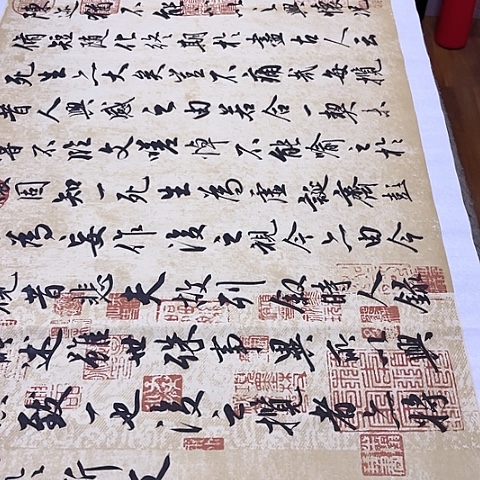 陳迹猶不能不以之興懷況
脩短隨化終期於盡古人云
死生亦大矣豈不痛哉每攬
昔人興感之由若合一契未
嘗不臨文嗟悼不能喻之於
固知一死生為虛誕齊彭
為妄作後之視今亦由今
視昔悲夫故列敘時人錄
所述雖世殊事異所以興
致一也後之攬者亦將
於斯文